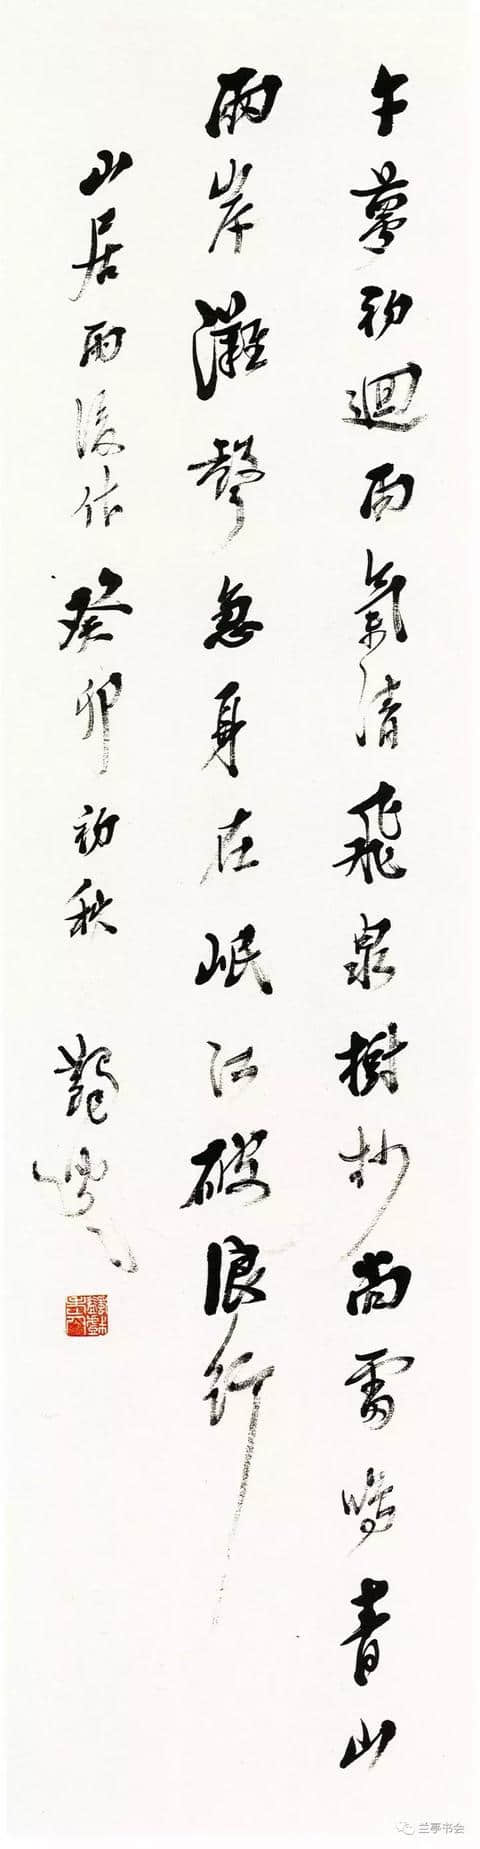 午夢初迴雨氣清飛泉樹杪尚雷鳴青山
兩岸灘聲急身在岷江破浪行
山居雨後作癸卯初秋 蠲叟
兰亭书会